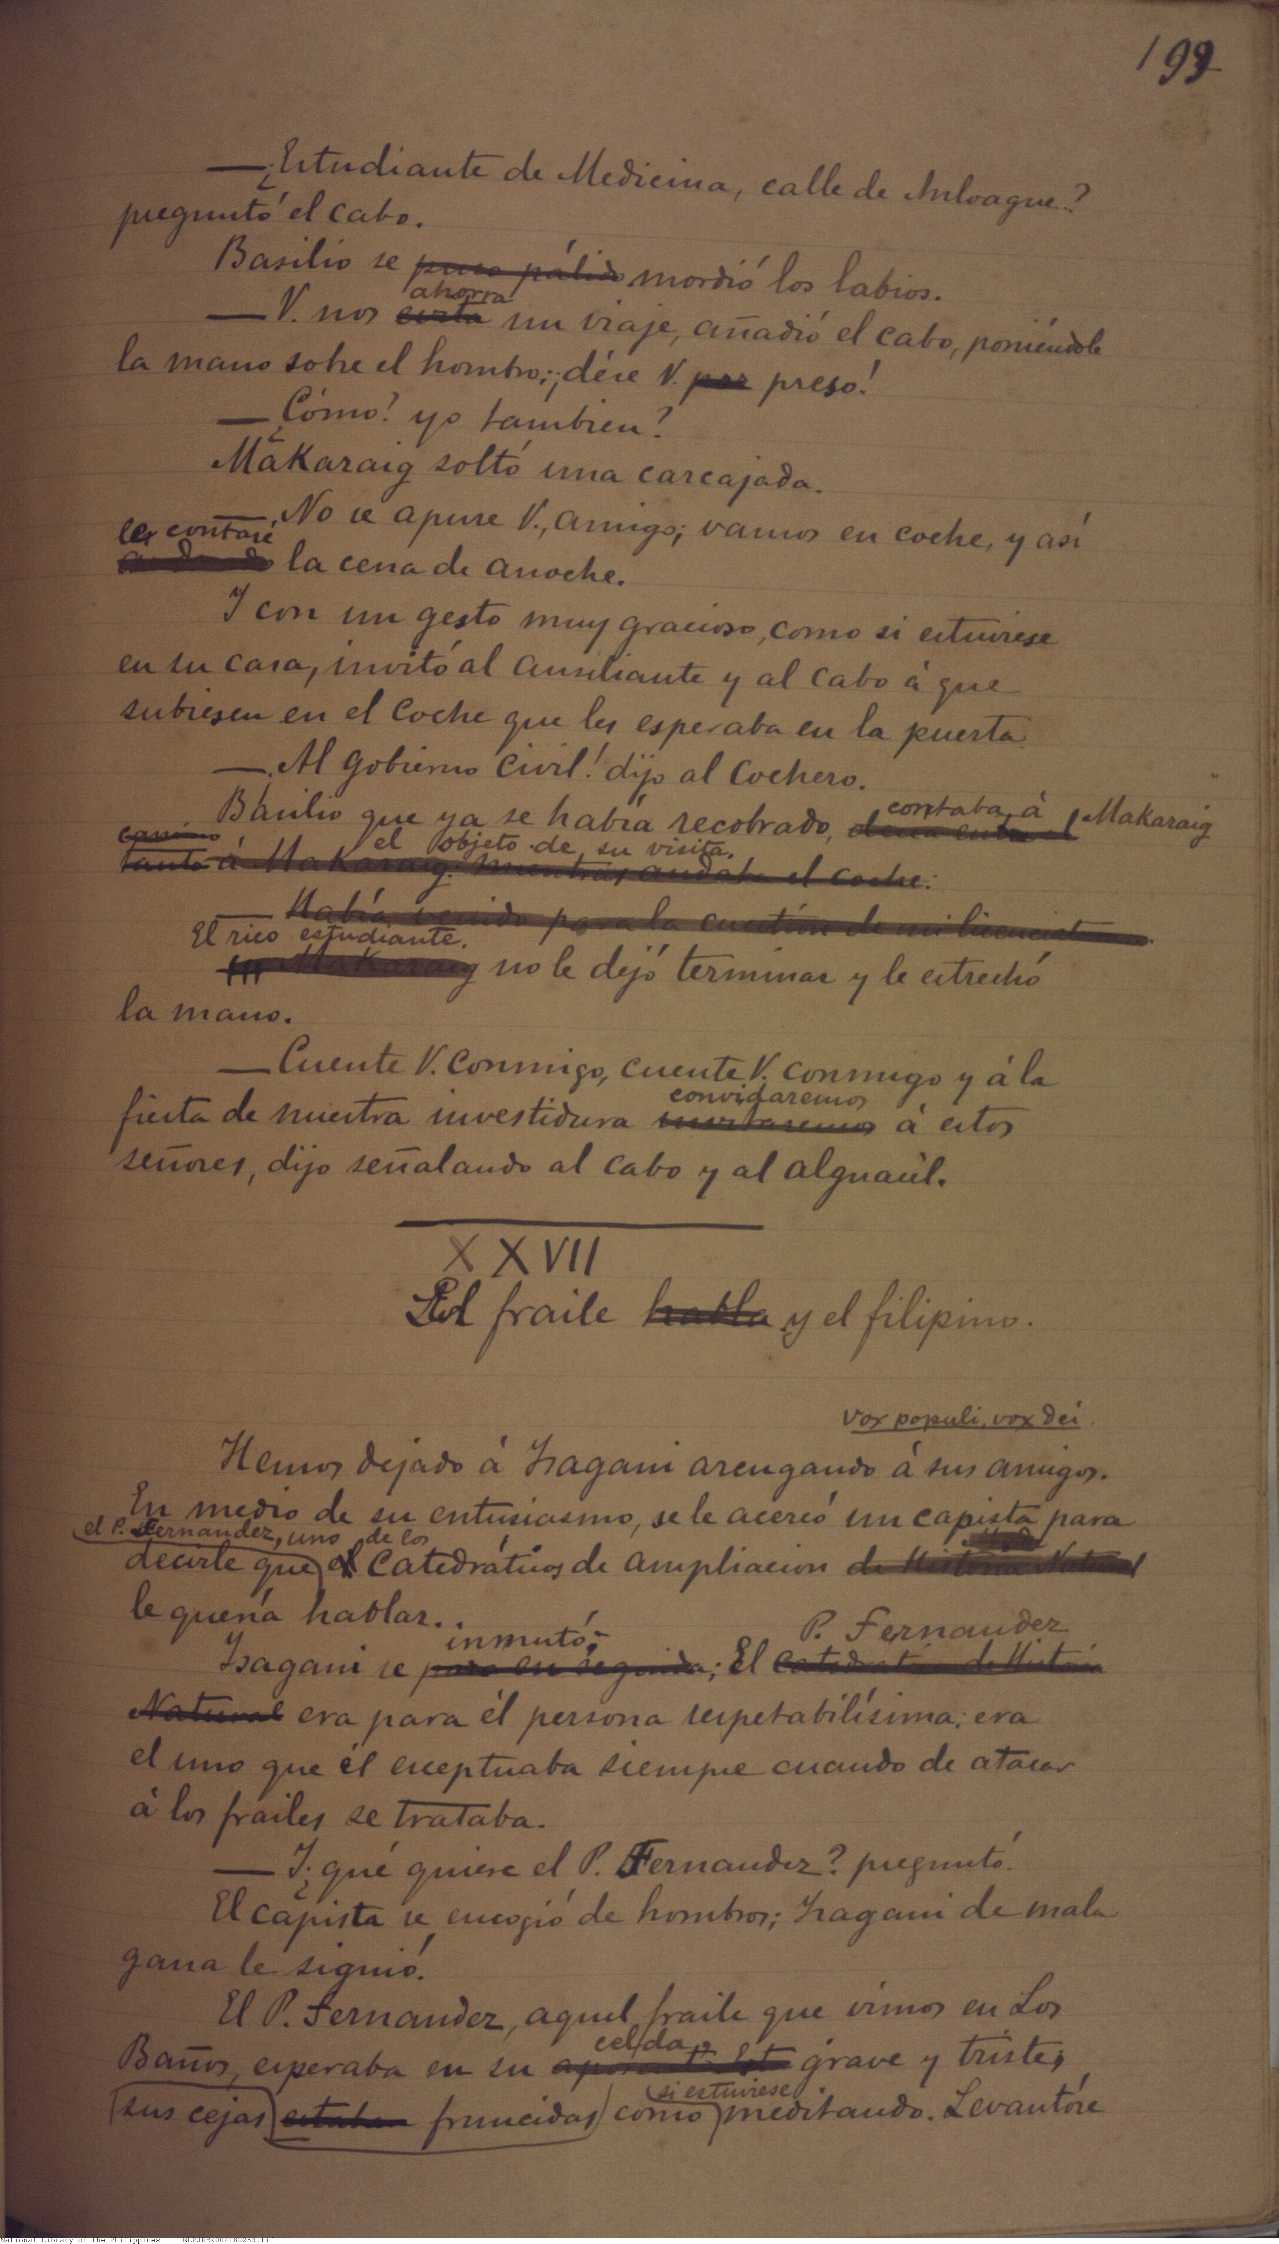 199
—¿Estudiante de Medicina, calle de Anloague?
preguntó el cabo.
Basilio se puso pálido mordió los labios.
ahorra
—V. nos evita un viaje, añadió el cabo, poniéndole
la mano sobre el hombro; ¡dése V. por preso!
—¿Cómo? yo tambien?
Makaraig soltó una carcajada.
—No se apure V., amigo; vamos en coche, y así
les contaré
andando la cena de anoche.
Y con un gesto muy gracioso, como si estuviese
en su casa, invitó al ausiliante y al cabo á que
subiesen en el coche que les esperaba en la puerta.
—¡Al Gobierno Civil! dijo al cochero.
Basilio que ya se había recobrado, contaba á Makaraig
el objeto de su visita.
tanto á Makaraig. mientras andaba el coche:
—Había venido para la cuestión de mi licenciatura
El rico estudiante.
Makaraig no le dejó terminar y le estrechó
la mano.
—Cuente V. conmigo, cuente V. conmigo y á la
convidaremos
fiesta de nuestra investidura invitaremos á estos
señores, dijo señalando al cabo y al alguacil.
XXVII
El fraile habla y el filipino.
Vox populi, vox dei.
Hemos dejado á Isagani arengando á sus amigos.
En medio de su entusiasmo, se le acercó un capista para
el P. Fernandez, uno de los
decirle que el Catedráticos de ampliacion de Historia Natural
le quería hablar.
inmutó. P. Fernandez
Isagani se puso en seguida; El Catedrático de Historia
Natural era para él persona respetabilísima: era
el uno que él exceptuaba siempre cuando de atacar
á los frailes se trataba.
—Y ¿qué quiere el P. Fernandez? preguntó.
El capista se encogió de hombros; Isagani de mala
gana le siguió.
El P. Fernandez, aquel fraile que vimos en Los
celda,
Baños, esperaba en su aposento. Est grave y triste,
si estuviese
sus cejas estaban fruncidas como meditando. Levantóse